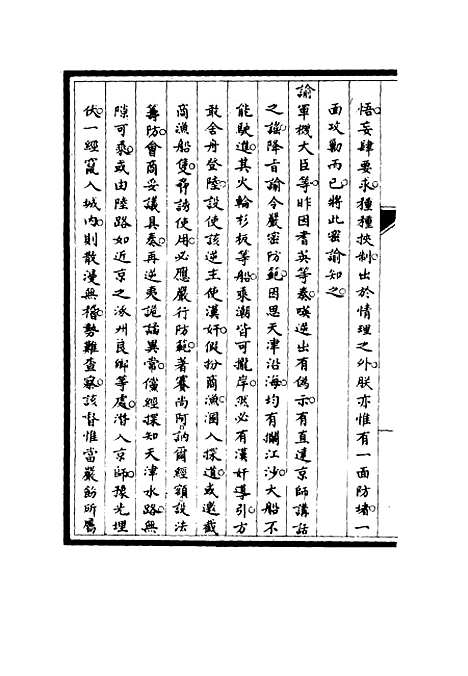 悟妄肆要求種種挾制出於情理之外朕亦惟有一面防堵一
面攻勦而已將此密諭知之
諭軍機大臣等昨因耆英等奏嘆逆出有偽示有直達京師講話
之謠降旨諭令嚴密防範因思天津沿海均有攔江沙大船不
能駛進其火輪杉板等船乘潮皆可攏岸然必有漢奸導引方
敢舍舟登陸設使該逆主使漢奸假扮商漁溷入探道或邀截
商漁船隻尋謗使用必應嚴行防範著賽尚阿訥爾經額設法
籌防會商妥議具奏再逆夷詭譎異常儻經探知天津水路無
隙可乘或由陸路如近京之涿州良鄉等處潛入京師豫先埋
伏一經竄入城內則散漫無稽勢難查察該督惟當嚴飭所屬